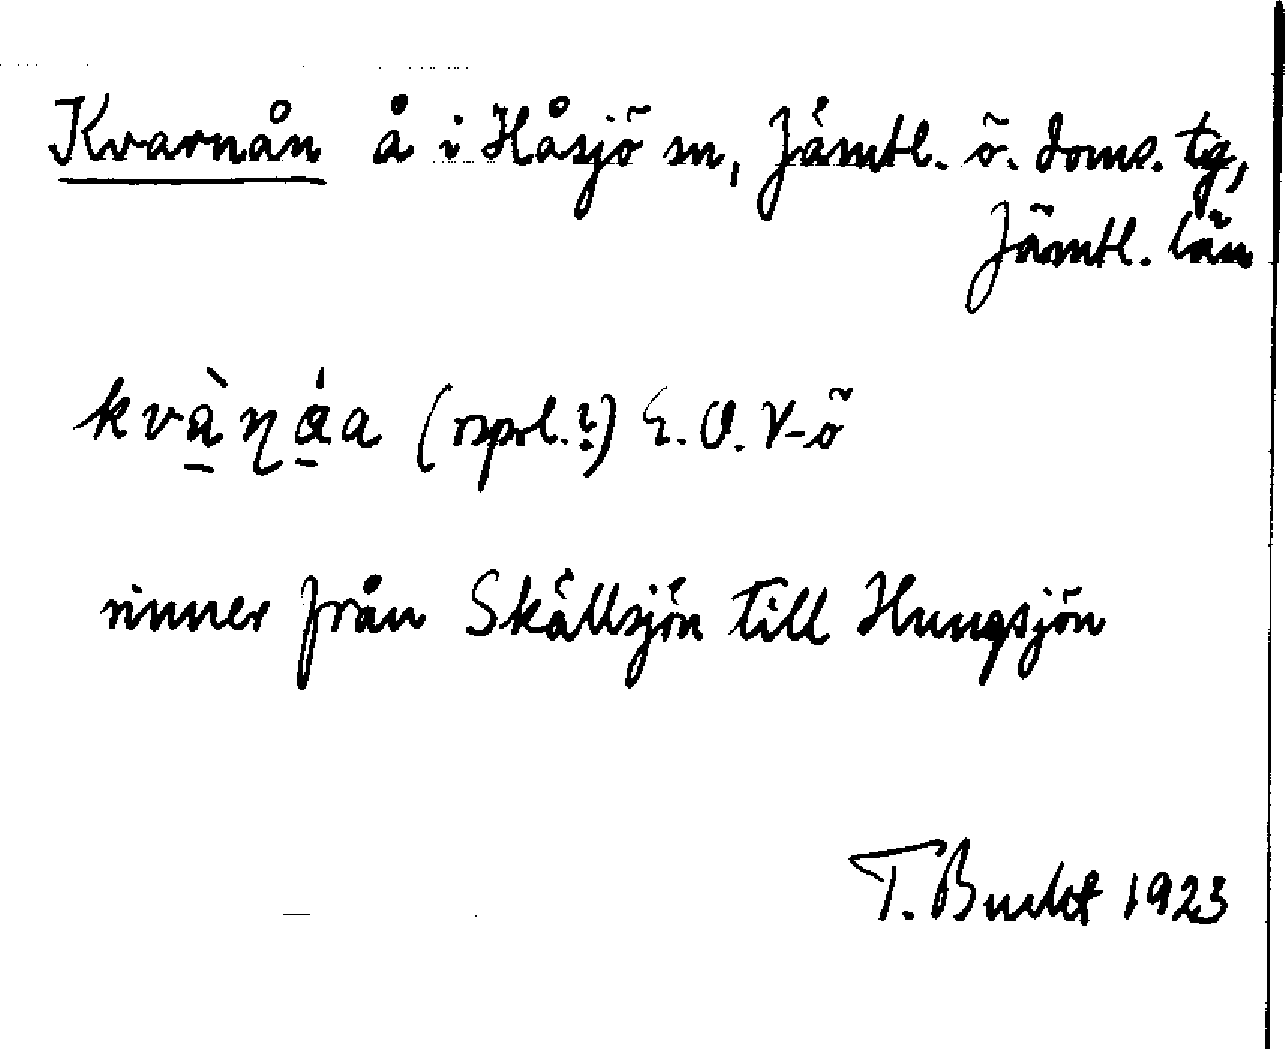 Kvarnån å i Håsjö sn, Jämtl. ö. doms. tg,
Jämtl. län
kvàɳáa (rspr.l.?) E. O. V-ö
rinner från Skällsjön till Hungsjön
T. Bucht 1923